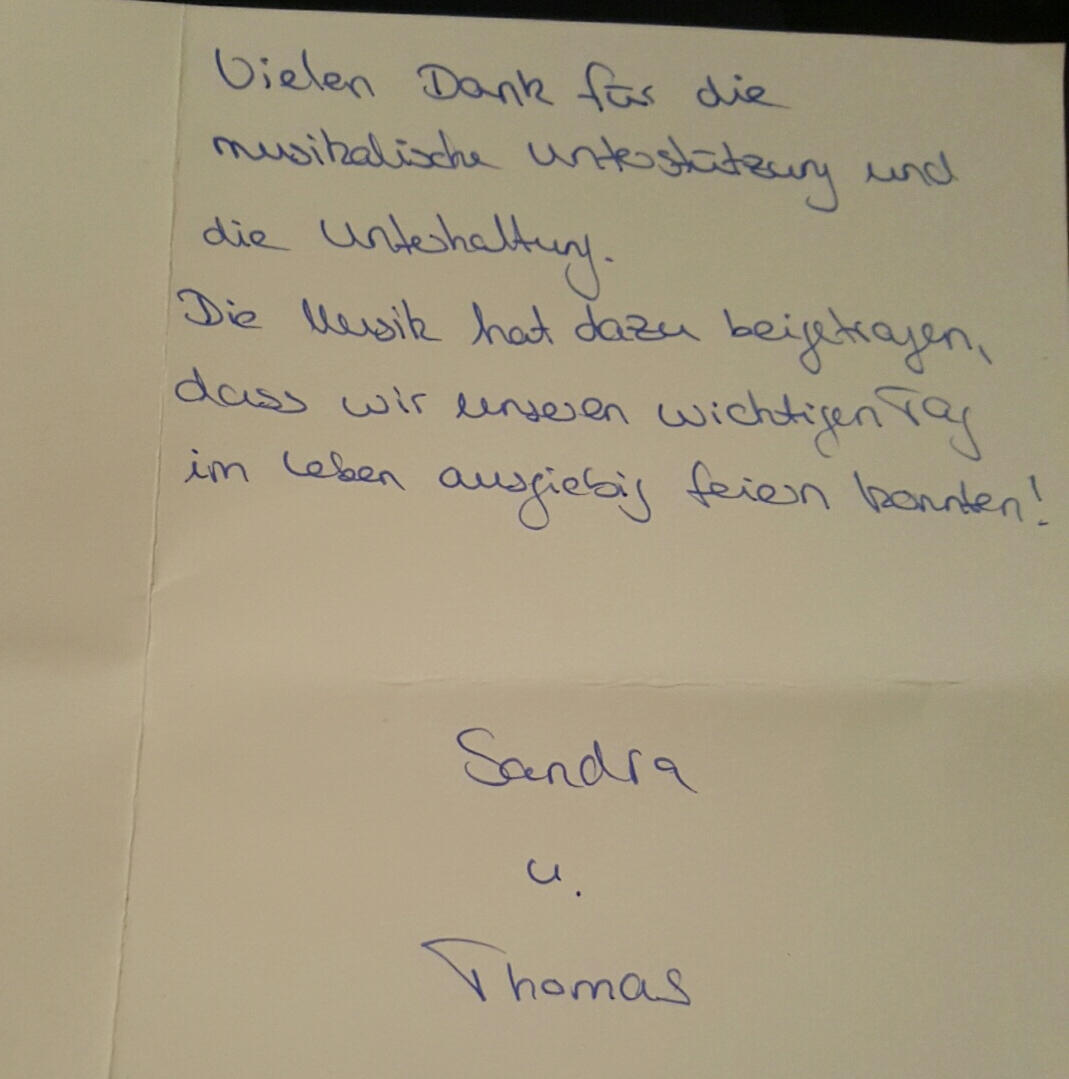 Vielen Dank für die
musikalische Unterstützung und
die Unterhaltung.
Die Musik hat dazu beigetragen,
dass wir unseren wichtigen Tag
im Leben ausgiebig feiern konnten!
Sandra
u.
Thomas